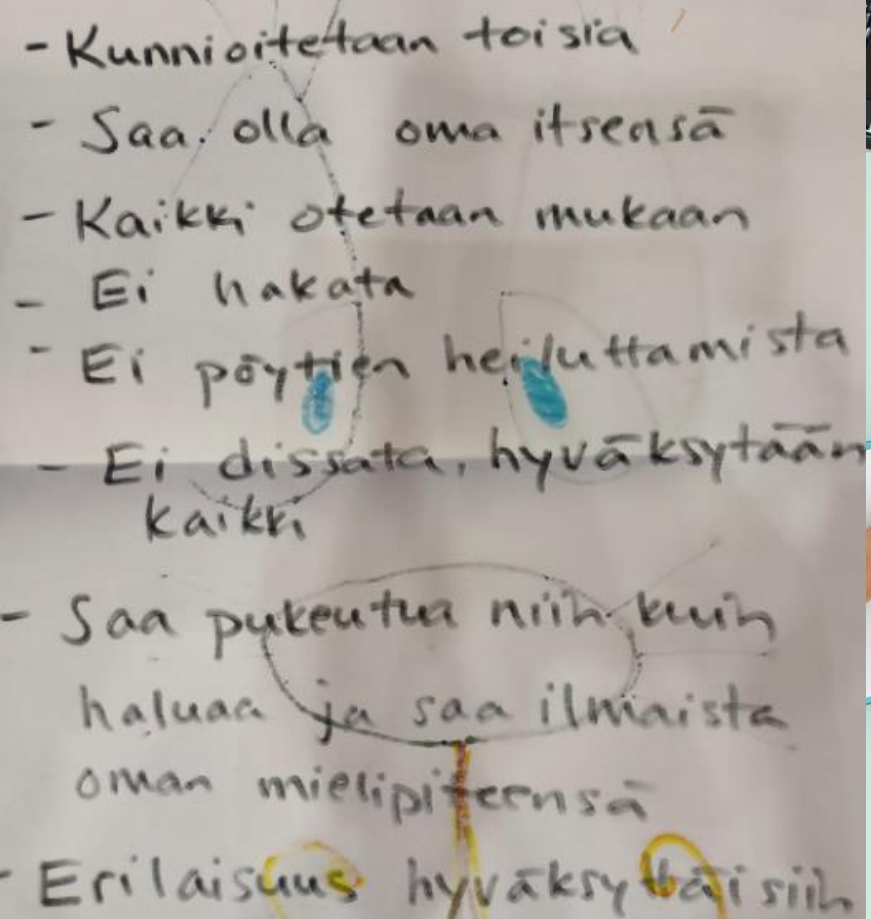 - Kunnioitetaan toisia
- Saa olla oma itsensä
- Kaikki otetaan mukaan
- Ei hakata
- Ei pöytien heiluttamista
- Ei dissata, hyväksytään
kaikki
- Saa pukeutua niin kuin
haluaa ja saa ilmaista
oman mielipiteensä
- Erilaisuus hyväksyttäisiin